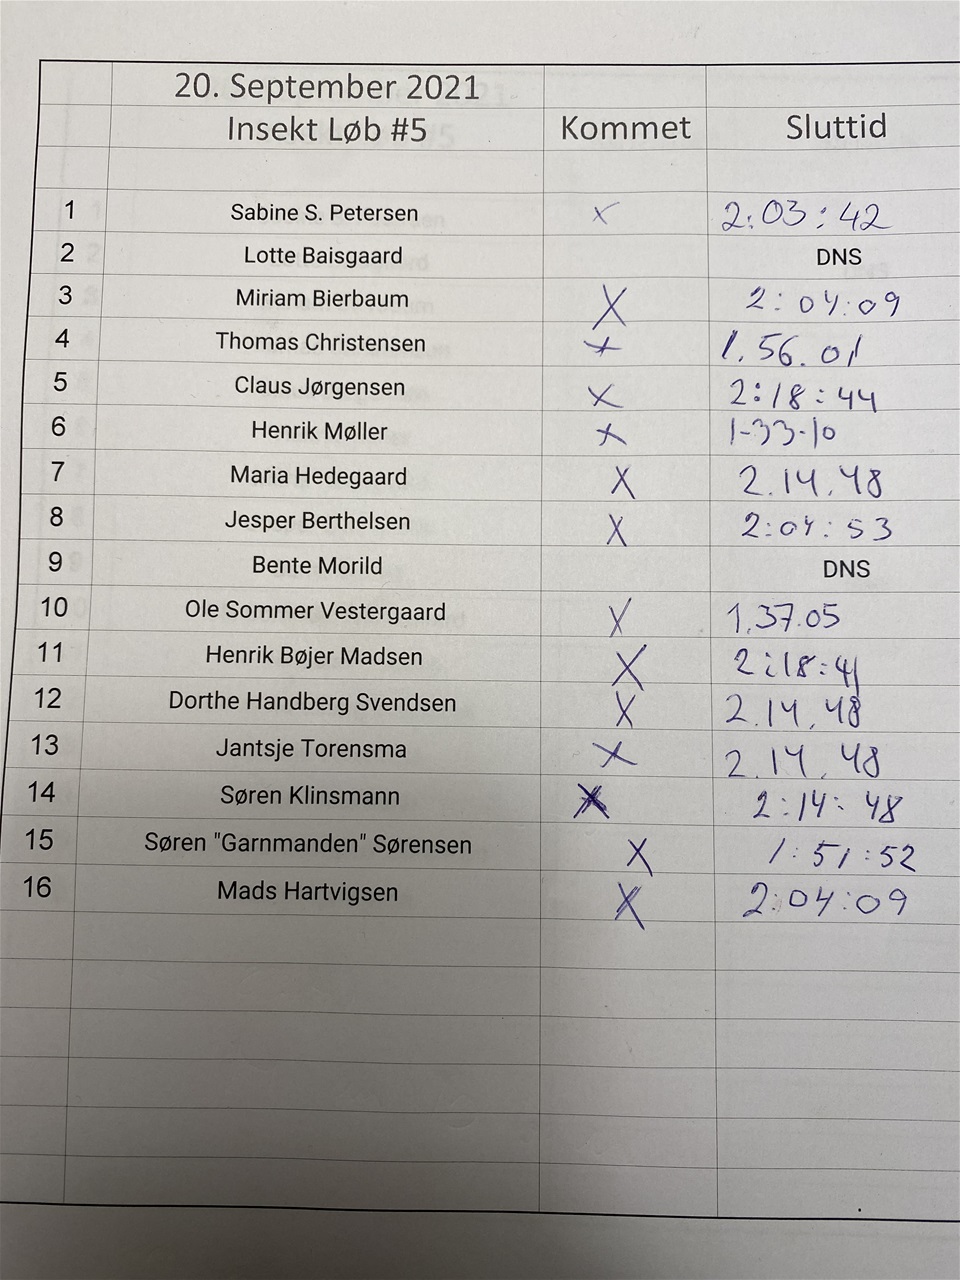 20. September 2021
Insekt Løb #5 Kommet Sluttid
1 Sabine S. Petersen X 2:03:42
2 Lotte Baisgaard DNS
3 Miriam Bierbaum X 2:04:09
4 Thomas Christensen X 1.56.01
5 Claus Jørgensen X 2:18:44
6 Henrik Møller X 1-33-10
7 Maria Hedegaard X 2.14.48
8 Jesper Berthelsen X 2:04:53
9 Bente Morild DNS
10 Ole Sommer Vestergaard X 1.37.05
11 Henrik Bøjer Madsen X 2:18:41
12 Dorthe Handberg Svendsen X 2.14.48
13 Jantsje Torensma X 2.14.48
14 Søren Klinsmann X 2:14:48
15 Søren "Garnmanden" Sørensen X 1:51:52
16 Mads Hartvigsen X 2:04:09